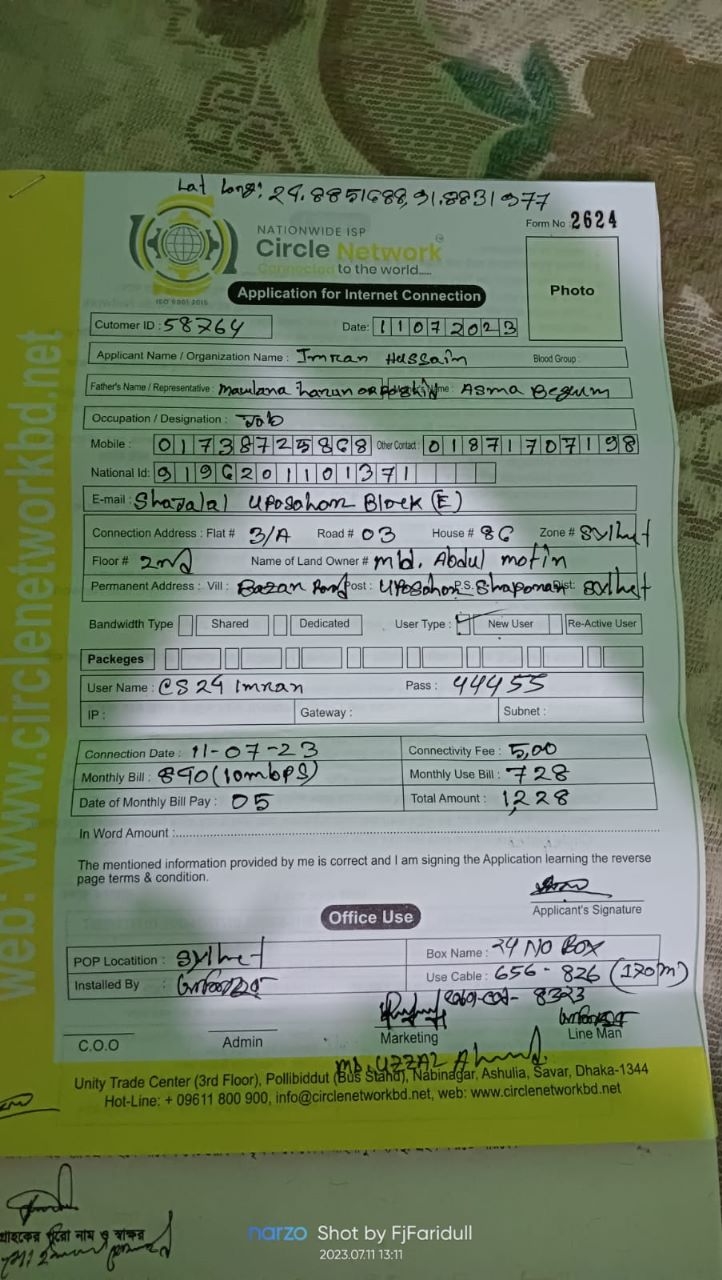 Lat Long: 24.8851688, 91.8831977
Form No 2624
NATIONWIDE ISP
Circle Network
Connected to the world.....
ISO 9001 2015
Application for Internet Connection
Photo
Cutomer ID : 58764 Date: 11072023
Applicant Name / Organization Name : Imran Hussain Blood Group :
Father's Name / Representative : Maulana harun Name : Asma Begum
Occupation / Designation : Job
Mobile : 01738725868 Other Contact : 01871707198
National Id: 9196201101371
E-mail : Shazalal Uposohom Block (E)
Connection Address : Flat # 3/A Road # 03 House # 86 Zone # Sylhet
Floor # 2nd Name of Land Owner # Md. Abdul motin
Permanent Address : Vill : Road Post : Uposohon P.S. Dist: Sylhet
Bandwidth Type Shared Dedicated User Type : New User Re-Active User
Packeges
User Name : CS24 Imran Pass : 44455
IP : Gateway : Subnet :
Connection Date : 11-07-23 Connectivity Fee : 5,00
Monthly Bill : 890 (10mbps) Monthly Use Bill : 728
Date of Monthly Bill Pay : 05 Total Amount : 1,228
In Word Amount :
The mentioned information provided by me is correct and I am signing the Application learning the reverse
page terms & condition.
Applicant's Signature
Office Use
POP Locatition : Sylhet Box Name : 24 NO BOX
Installed By : Use Cable : 656 - 826 (170m)
8323
C.O.O Admin Marketing Line Man
Md. UZZAL Ahmed
Unity Trade Center (3rd Floor), Pollibiddut (Bus Stand), Nabinagar, Ashulia, Savar, Dhaka-1344
Hot-Line: + 09611 800 900, info@circlenetworkbd.net, web: www.circlenetworkbd.net
web: www.circlenetworkbd.net
narzo Shot by FjFaridull
2023.07.11 13:11